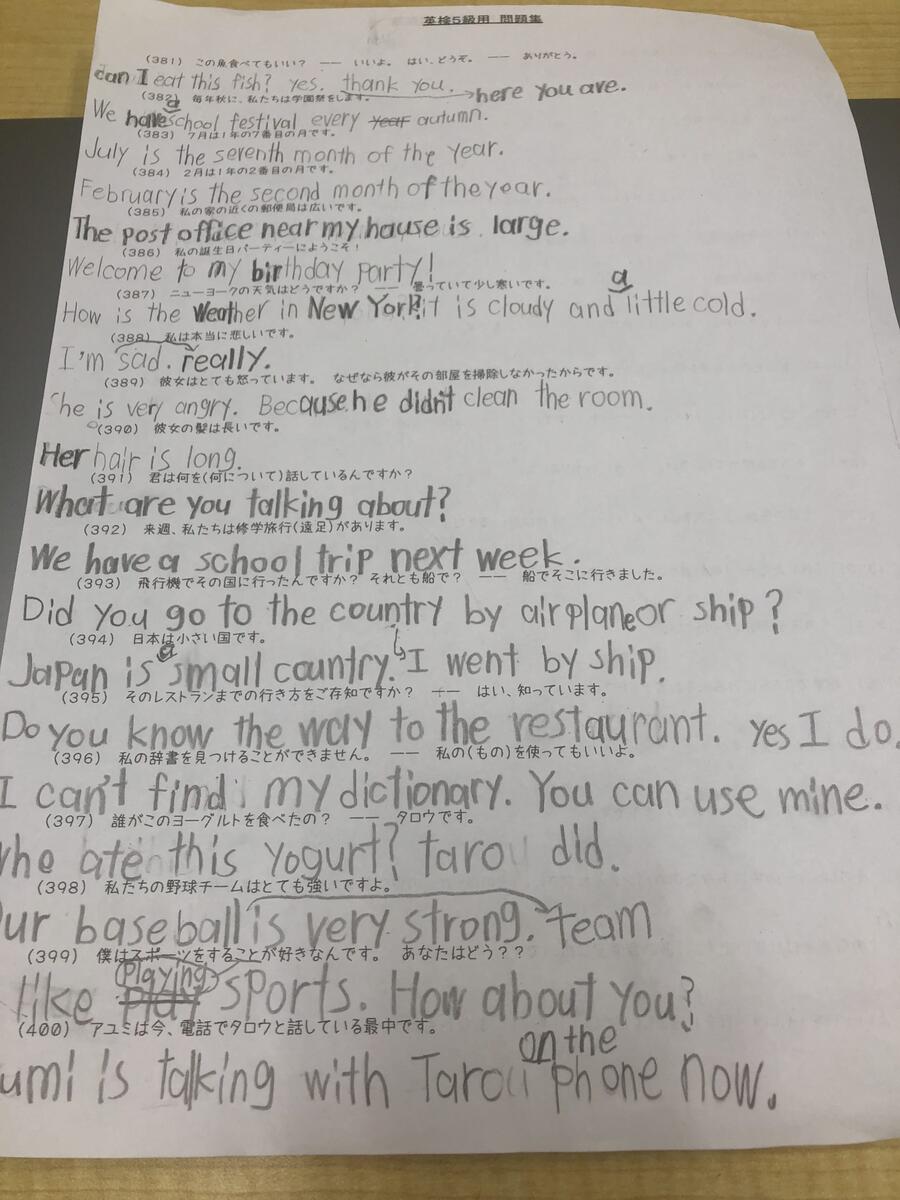 英検5級用 問題集
(381) この魚食べてもいい? —— いいよ。 はい、どうぞ。 —— ありがとう。
can I eat this fish? yes. thank you. here you are.
(382) 毎年秋に、私たちは学園祭をします。
We have a school festival every year autumn.
(383) 7月は1年の7番目の月です。
July is the seventh month of the year.
(384) 2月は1年の2番目の月です。
February is the second month of the year.
(385) 私の家の近くの郵便局は広いです。
The post office near my hause is large.
(386) 私の誕生日パーティーにようこそ!
Welcome to my birthday party!
(387) ニューヨークの天気はどうですか? —— 曇っていて少し寒いです。
How is the weather in New York? it is cloudy and a little cold.
(388) 私は本当に悲しいです。
I'm sad. really.
(389) 彼女はとても怒っています。 なぜなら彼がその部屋を掃除しなかったからです。
She is very angry. Because he didn't clean the room.
(390) 彼女の髪は長いです。
Her hair is long.
(391) 君は何を(何について)話しているんですか?
What are you talking about?
(392) 来週、私たちは修学旅行(遠足)があります。
We have a school trip next week.
(393) 飛行機でその国に行ったんですか? それとも船で? —— 船でそこに行きました。
Did you go to the country by airplane or ship?
(394) 日本は小さい国です。
Japan is a small country. I went by ship.
(395) そのレストランまでの行き方をご存知ですか? —— はい、知っています。
Do you know the way to the restaurant. yes I do.
(396) 私の辞書を見つけることができません。 —— 私の(もの)を使ってもいいよ。
I can't find my dictionary. You can use mine.
(397) 誰がこのヨーグルトを食べたの? —— タロウです。
ate this yogurt? tarou did.
(398) 私たちの野球チームはとても強いですよ。
ur baseball is very strong. team
(399) 僕はスポーツをすることが好きなんです。 あなたはどう??
like play playing sports. How about you?
(400) アユミは今、電話でタロウと話している最中です。
umi is talking with Tarou on the phone now.